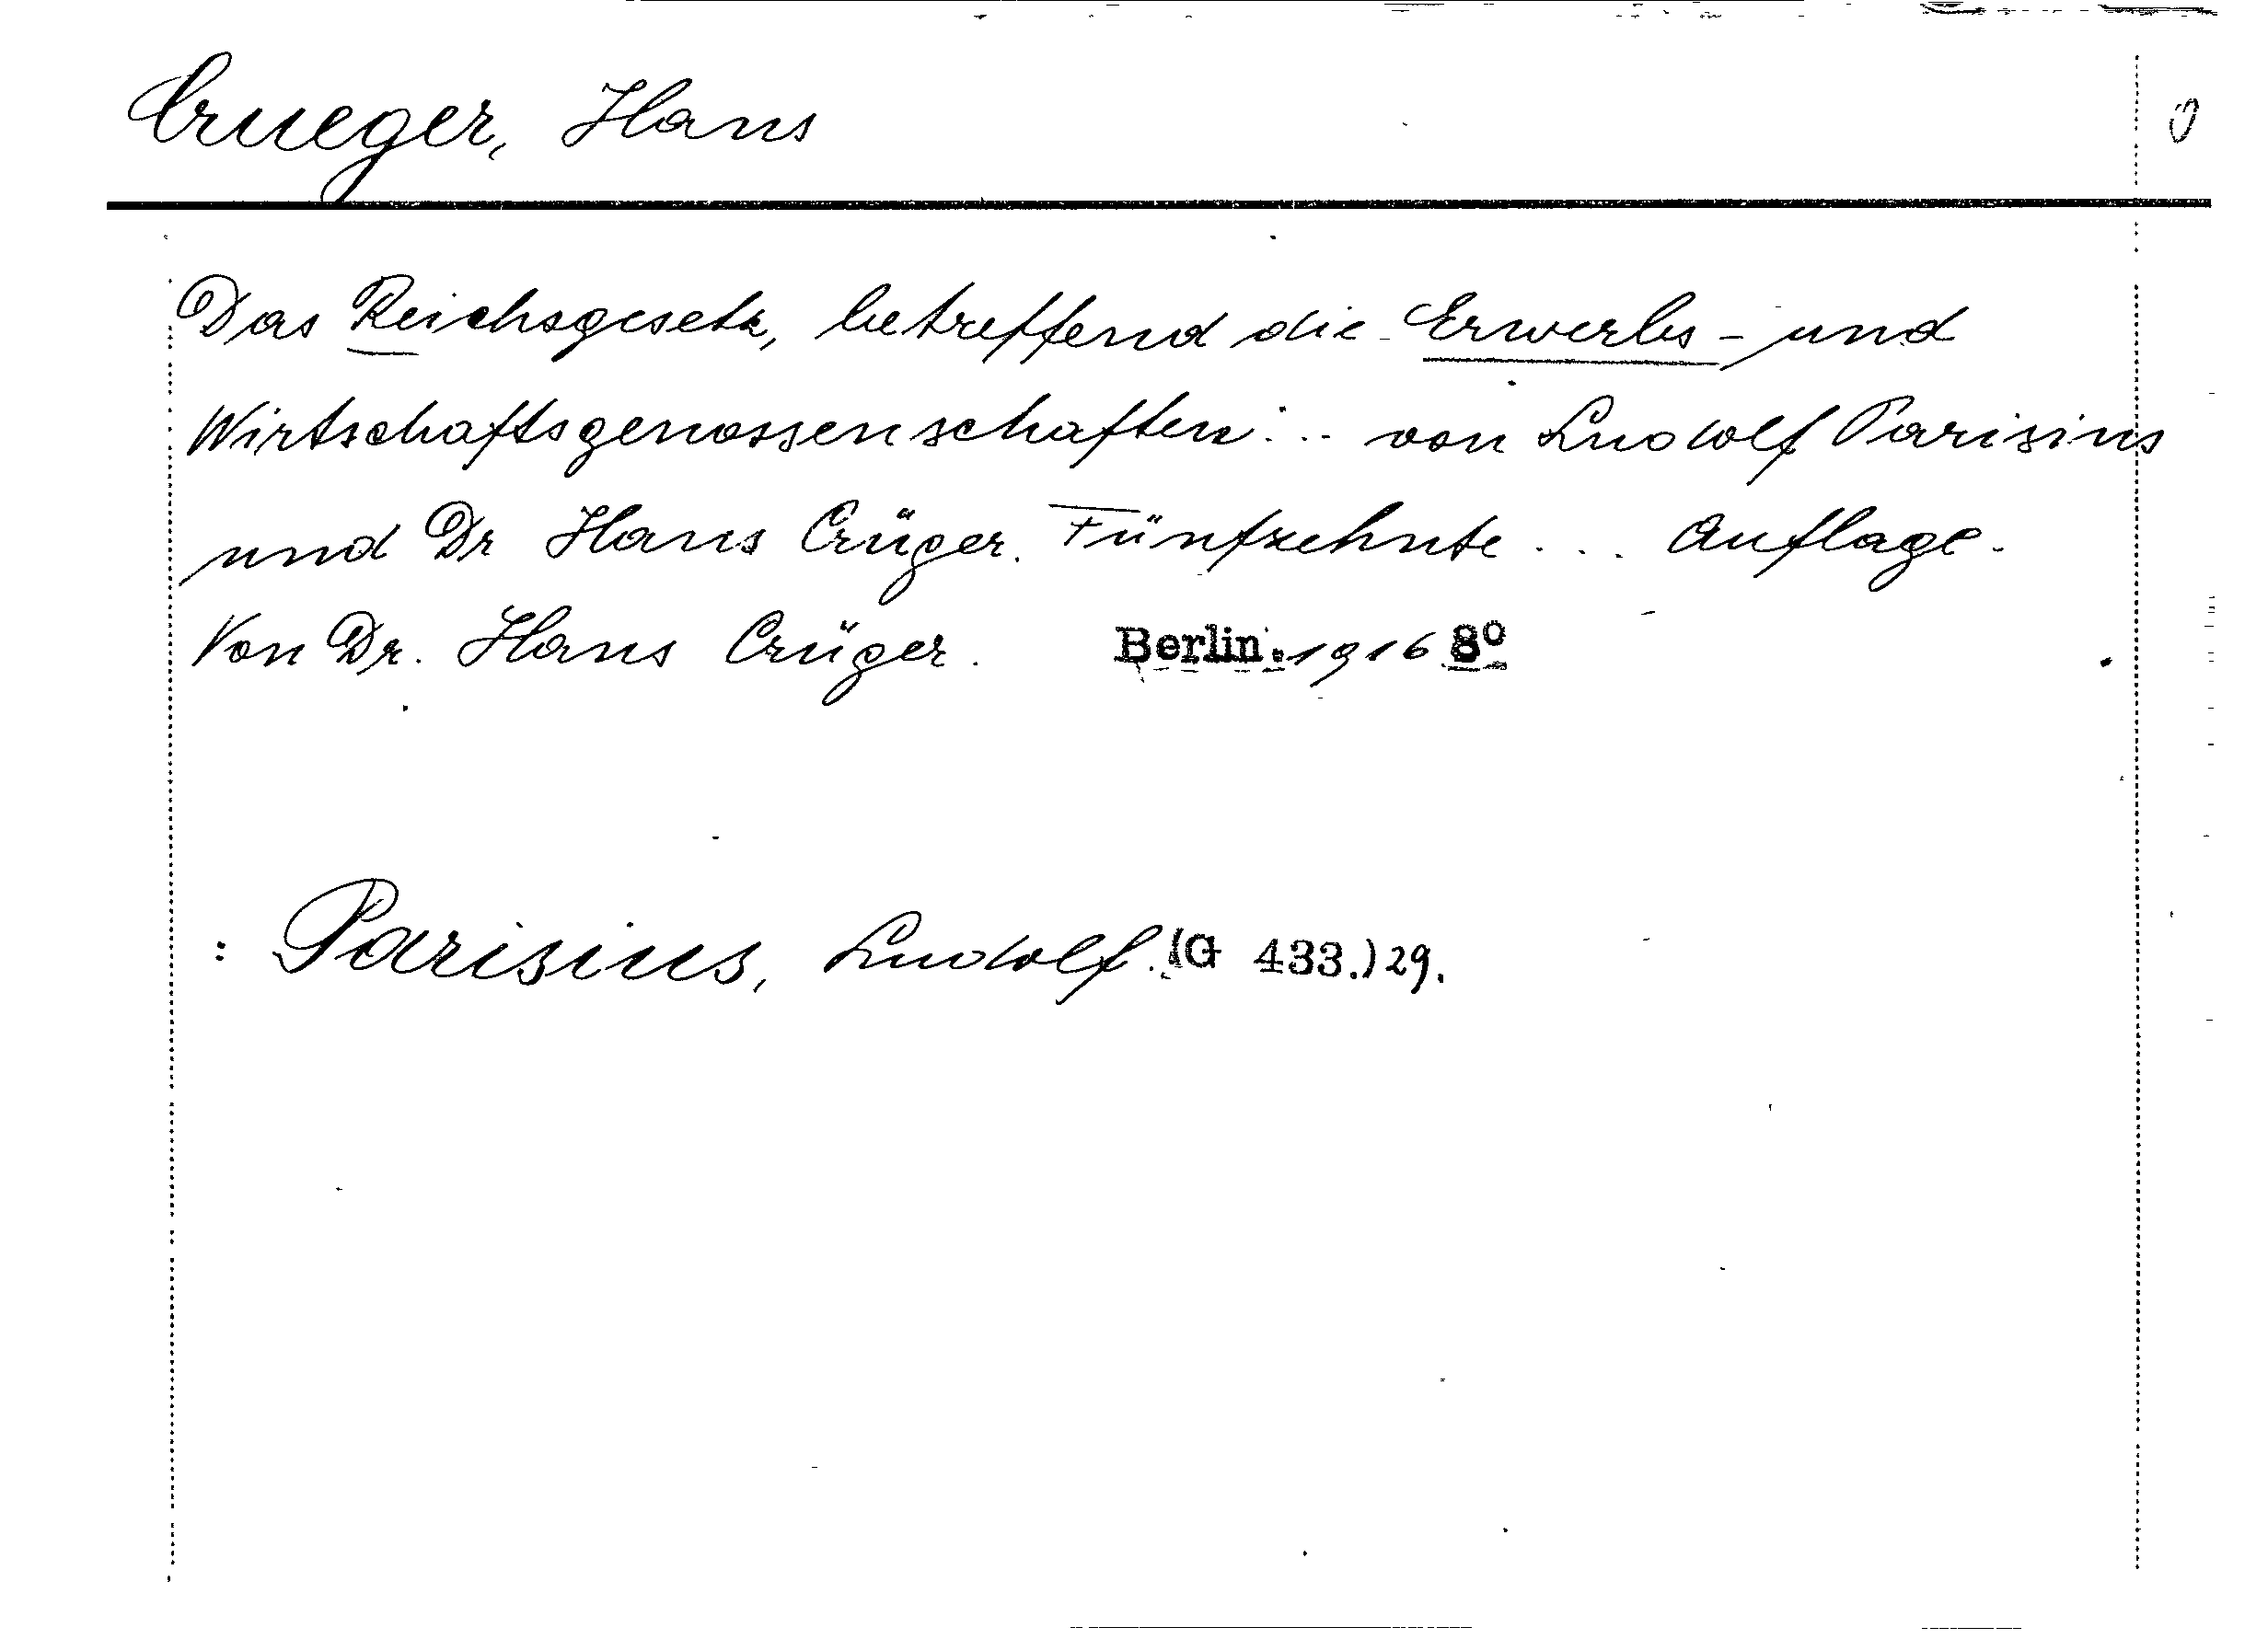 Crueger, Hans
Das Reichsgesetz, betreffend die Erwerbs- und
Wirtschaftsgenossenschaften... von Ludolf Parisius
und Dr Hans Crüger. Fünfzehnte ... Auflage.
Von Dr. Hans Crüger. Berlin. 1916 8º
: Parisius, Ludolf. (G 433.) 29.